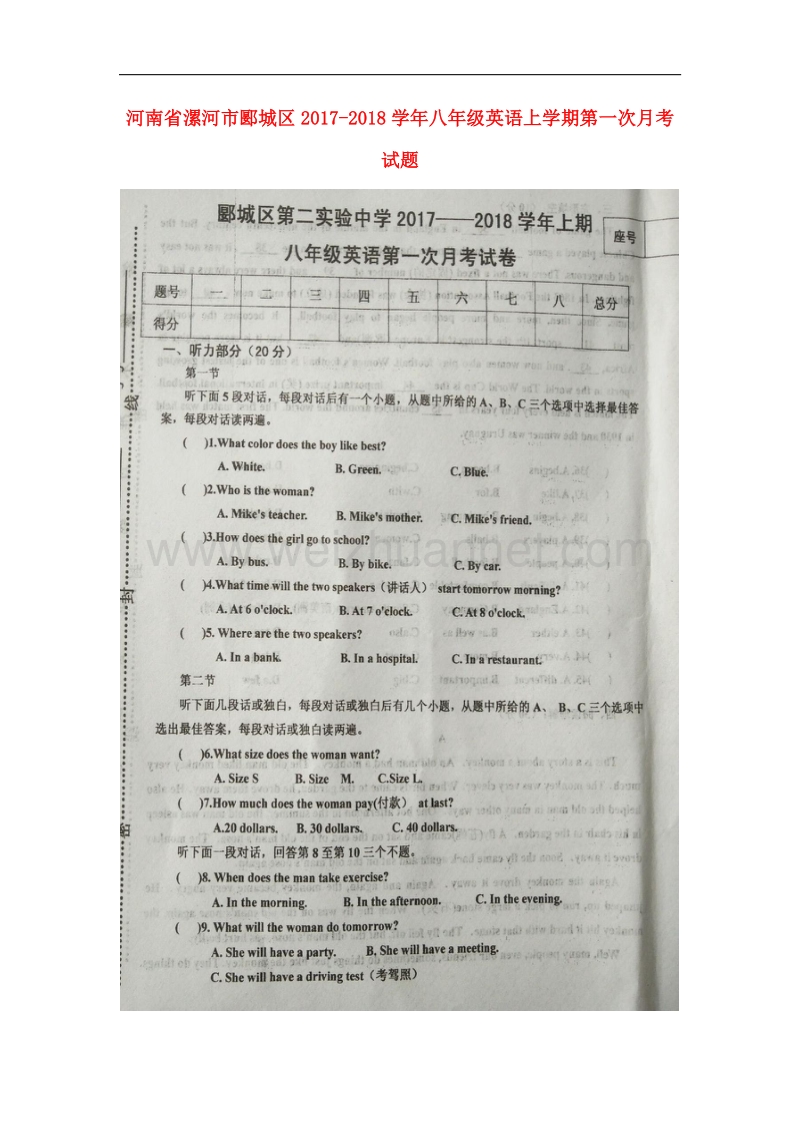 河南省漯河市郾城区 2017-2018 学年八年级英语上学期第一次月考
试题
郾城区第二实验中学 2017——2018 学年上期
座号
八年级英语第一次月考试卷
题号 一 二 三 四 五 六 七 八 总分
得分
一、听力部分（20 分）
第一节
听下面 5 段对话，每段对话后有一个小题，从题中所给的 A、B、C 三个选项中选择最佳答
案，每段对话读两遍。
( )1.What color does the boy like best?
A. White. B. Green. C. Blue.
( )2.Who is the woman?
A. Mike's teacher. B. Mike's mother. C. Mike's friend.
( )3.How does the girl go to school?
A. By bus. B. By bike. C. By car.
( )4.What time will the two speakers（讲话人） start tomorrow morning?
A. At 6 o'clock. B. At 7 o'clock. C. At 8 o'clock.
( )5. Where are the two speakers?
A. In a bank. B. In a hospital. C. In a restaurant.
第二节
听下面几段话或独白，每段对话或独白后有几个小题，从题中所给的 A、 B、C 三个选项中
选出最佳答案，每段对话或独白读两遍。
( )6.What size does the woman want?
A. Size S B. Size M. C.Size L.
( )7.How much does the woman pay(付款） at last?
A.20 dollars. B. 30 dollars. C. 40 dollars.
听下面一段对话，回答第 8 至第 10 三个不题。
( )8. When does the man take exercise?
A. In the morning. B. In the afternoon. C. In the evening.
( )9. What will the woman do tomorrow?
A. She will have a party. B. She will have a meeting.
C. She will have a driving test（考驾照）
线
封
密